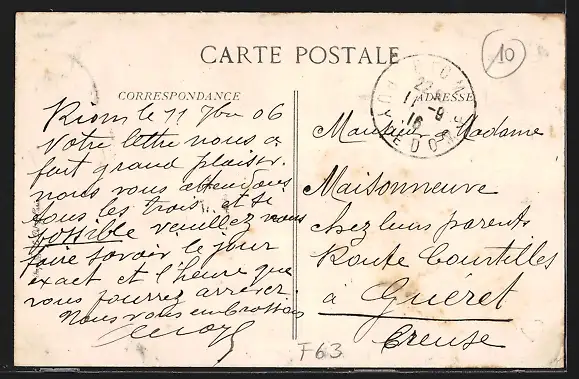 CARTE POSTALE
CORRESPONDANCE
ADRESSE
Riom le 11 7bre 06
Votre lettre nous a
fait grand plaisir.
nous vous attendons
tous les trois et si
possible veuillez nous
faire savoir le jour
exact et l'heure que
vous pourrez arriver.
Nous vous embrassons
RIOM
PUY-DE-DOME
11 -9
Monsieur & Madame
Maisonneuve
chez leurs parents
Route Courtilles
à Guéret
Creuse
10
F63